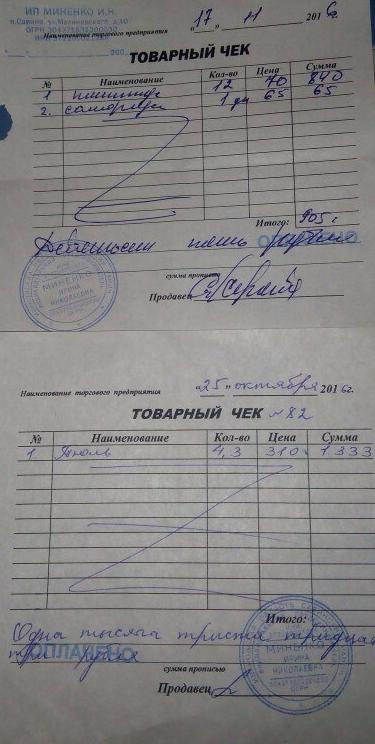 ИП МИНЕНКО И.Н.
"17" 11 2016г.
Наименование торгового предприятия
ТОВАРНЫЙ ЧЕК
№ Наименование Кол-во Цена Сумма
1 12 70 840
2. саморезы 1 65 65
Итого: 905 г
Девятьсот пять рублей
ОПЛАЧЕНО
сумма прописью
Продавец
МИНЕНКО
ИРИНА
НИКОЛАЕВНА
Наименование торгового предприятия "25" октября 2016г.
ТОВАРНЫЙ ЧЕК №82
№ Наименование Кол-во Цена Сумма
1 Тюль 4,3 310 1333
Итого:
Одна тысяча триста тридцать
три рубля
ОПЛАЧЕНО
сумма прописью
Продавец
МИНЕНКО
ИРИНА
НИКОЛАЕВНА